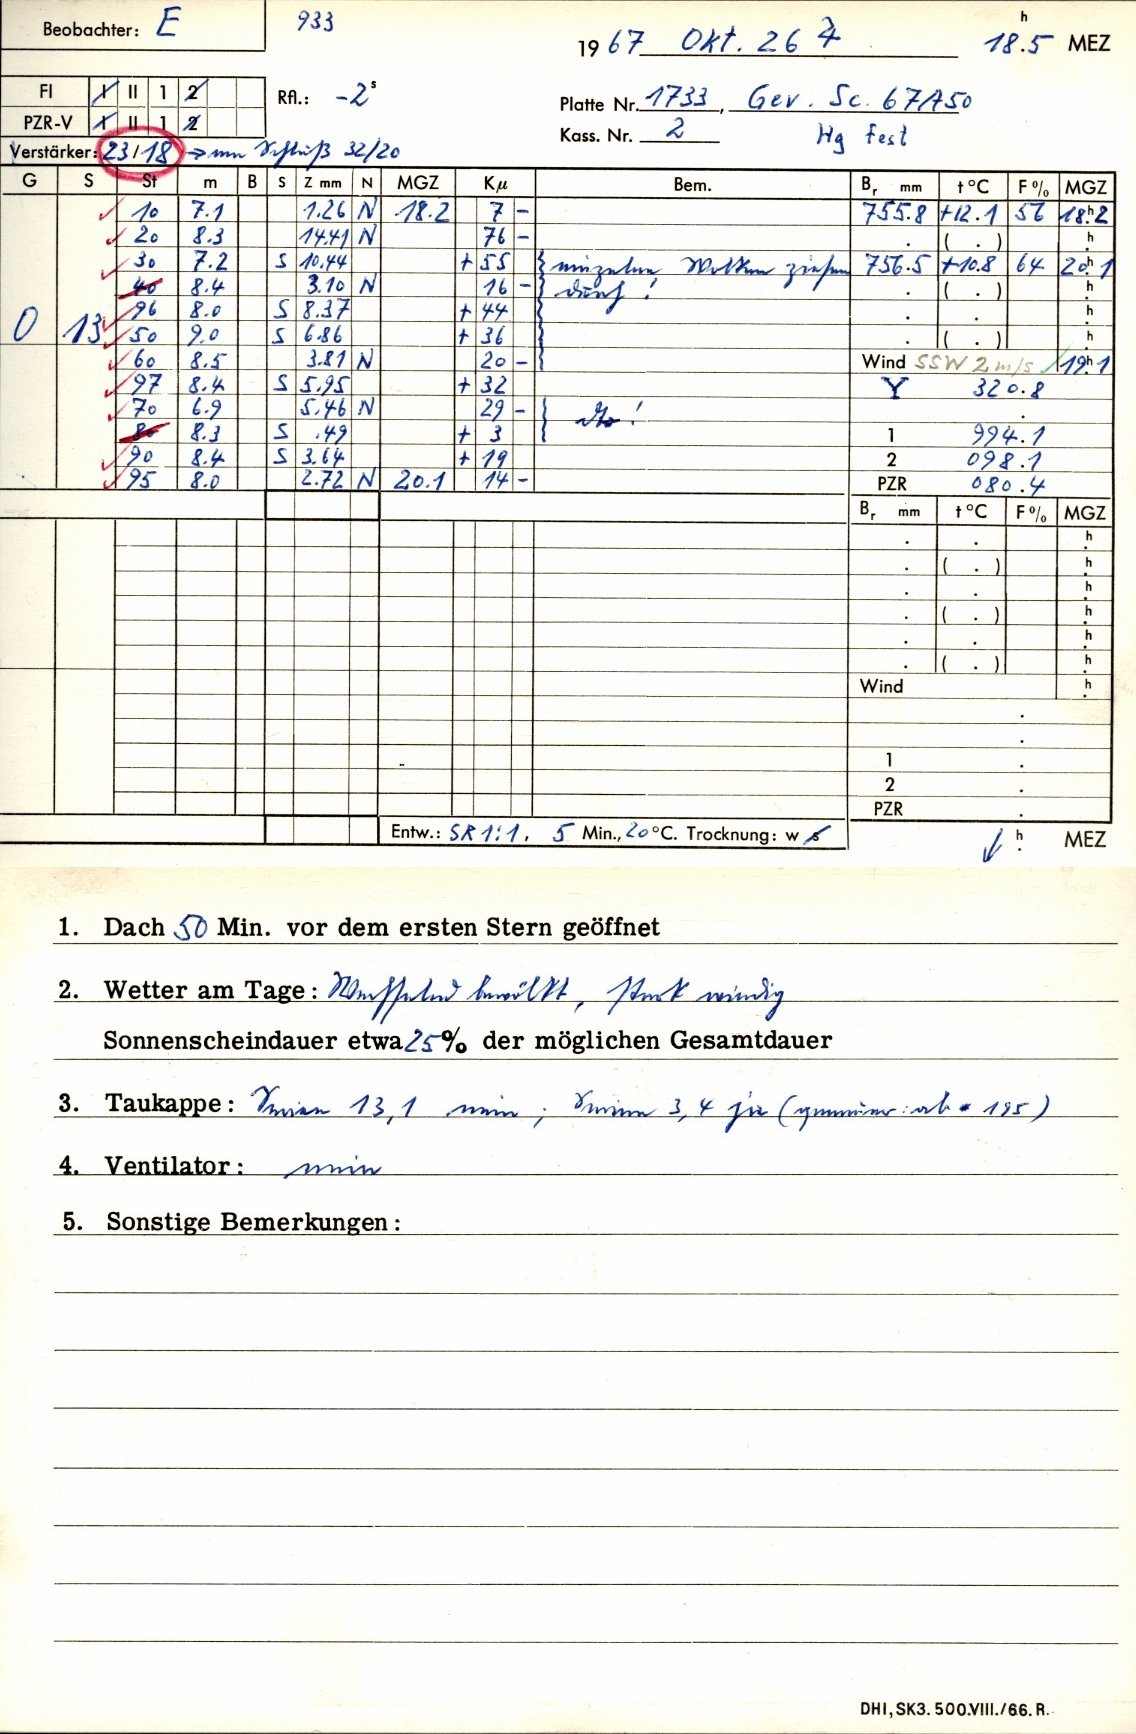 Beobachter: E 933 h
1967 Okt. 26 4 18.5 MEZ
FI I II 1 2 Rfl.: -2 s
PZR-V I II 1 2 Platte Nr. 1733, Gev. Sc. 67A50
Kass. Nr. 2 Hg fest
Verstärker: 23/18 → am Schluß 32/20
G S St m B S Z mm N MGZ Kμ Bem. Br mm t °C F % MGZ
10 7.1 1.26 N 18.2 7 - 755.8 +12.1 56 18h2
20 8.3 14.41 N 76 - . ( . ) h
30 7.2 S 10.44 + 55 einzelne Wolken ziehen 756.5 +10.8 64 20h1
40 8.4 3.10 N 16 - durch! . ( . ) h
96 8.0 S 8.37 + 44 . . h
0 13 50 9.0 S 6.86 + 36 . ( . ) h
60 8.5 3.81 N 20 - Wind SSW 2 m/s 19h1
97 8.4 S 5.95 + 32 Y 320.8
70 6.9 5.46 N 29 - dto! .
80 8.3 S .49 + 3 1 994.1
90 8.4 S 3.64 + 19 2 098.1
95 8.0 2.72 N 20.1 14 - PZR 080.4
Br mm t °C F % MGZ
. . h
. ( . ) h
. . h
. ( . ) h
. . h
. ( . ) h
Wind h
.
.
1 .
2 .
PZR .
Entw.: SR 1:1, 5 Min., 20 °C. Trocknung: w s h MEZ
1. Dach 50 Min. vor dem ersten Stern geöffnet
2. Wetter am Tage: Wechselnd bewölkt, stark windig
Sonnenscheindauer etwa 25% der möglichen Gesamtdauer
3. Taukappe: Serien 13, 1 nein; Serien 3, 4 ja (genauer: ab * 195)
4. Ventilator: nein
5. Sonstige Bemerkungen:
DHI, SK3. 500.VIII./66. R.